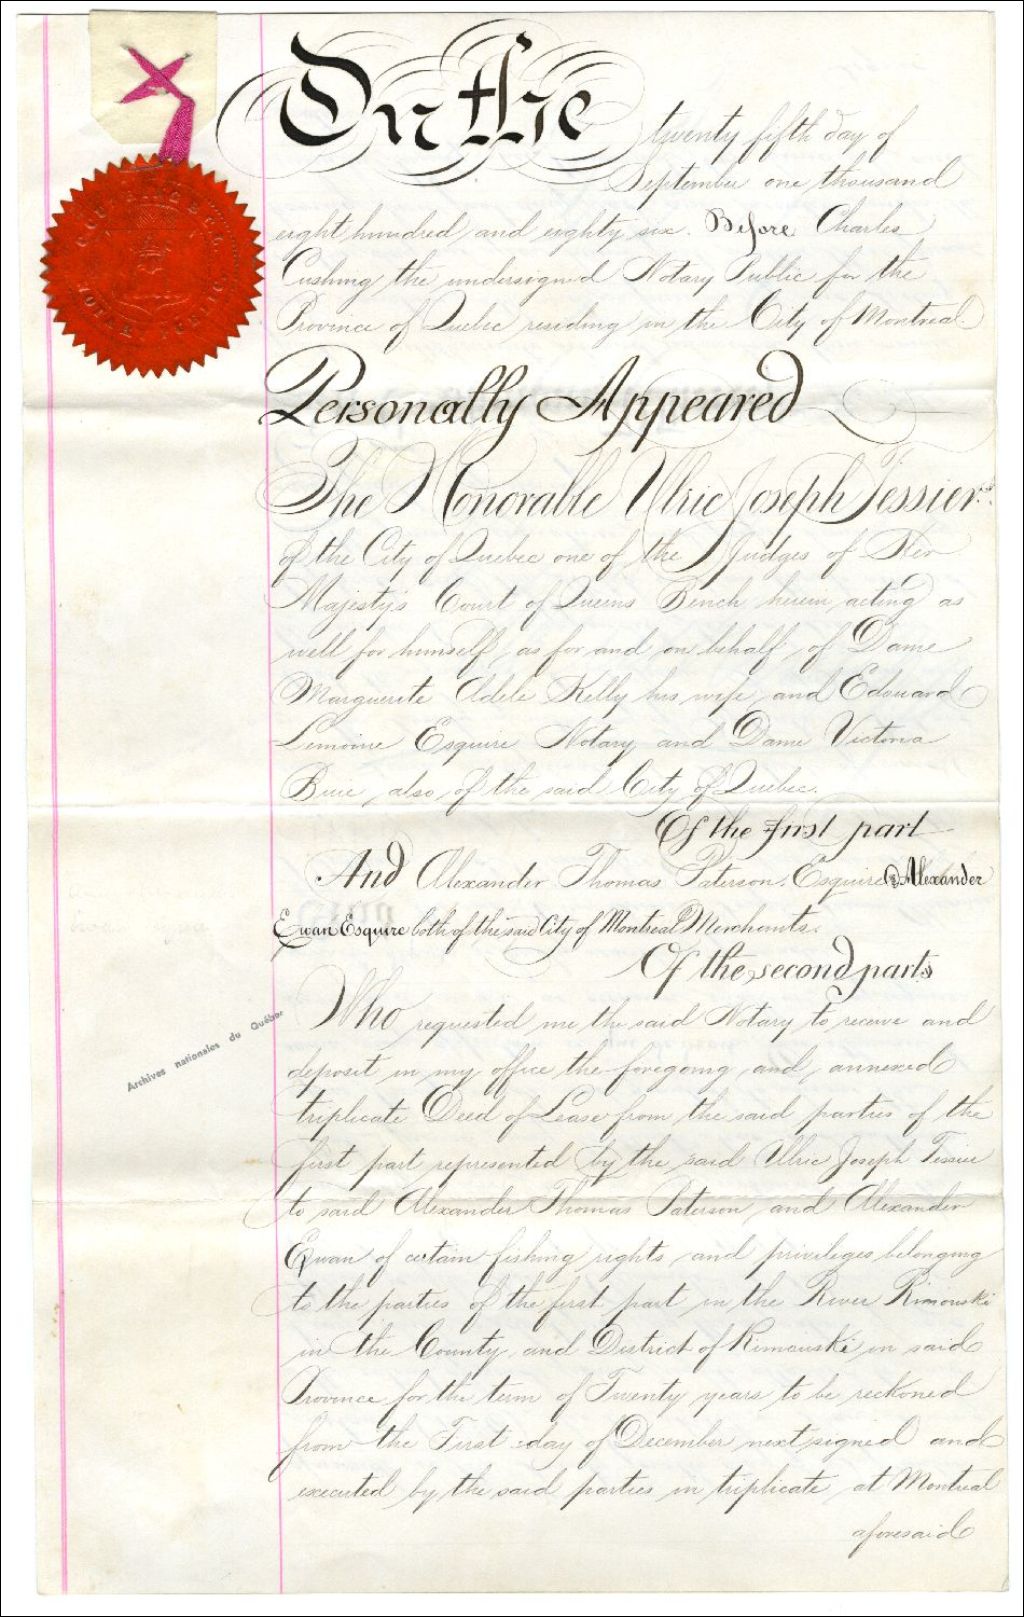 On the twenty fifth day of
September one thousand
eight hundred and eighty six. Before Charles
Cushing the undersigned Notary Public for the
Province of Quebec residing in the City of Montreal.
Personally Appeared
The Honorable Ulric Joseph Tessier
of the City of Quebec one of the Judges of Her
Majesty's Court of Queens Bench herein acting as
well for himself, as for and on behalf, of Dame
Marguerite Adele Kelly his wife, and Edouard
Lemoine Esquire Notary and Dame Victoria
Buie also of the said City of Quebec.
Of the first part
And Alexander Thomas Paterson, Esquire & Alexander
Ewan Esquire both of the said City of Montreal Merchants.
Of the second parts
Who requested me the said Notary to receive and
deposit in my office the foregoing and annexed
triplicate Deed of Lease from the said parties of the
first part represented by the said Ulric Joseph Tessier
to said Alexander Thomas Paterson and Alexander
Ewan of certain fishing rights and privileges belonging
to the parties of the first part in the River Rimouski
in the County and District of Rimouski in said
Province for the term of Twenty years to be reckoned
from the First day of December next signed and
executed by the said parties in triplicate at Montreal
aforesaid
Archives nationales du Québec
NOTARY PUBLIC